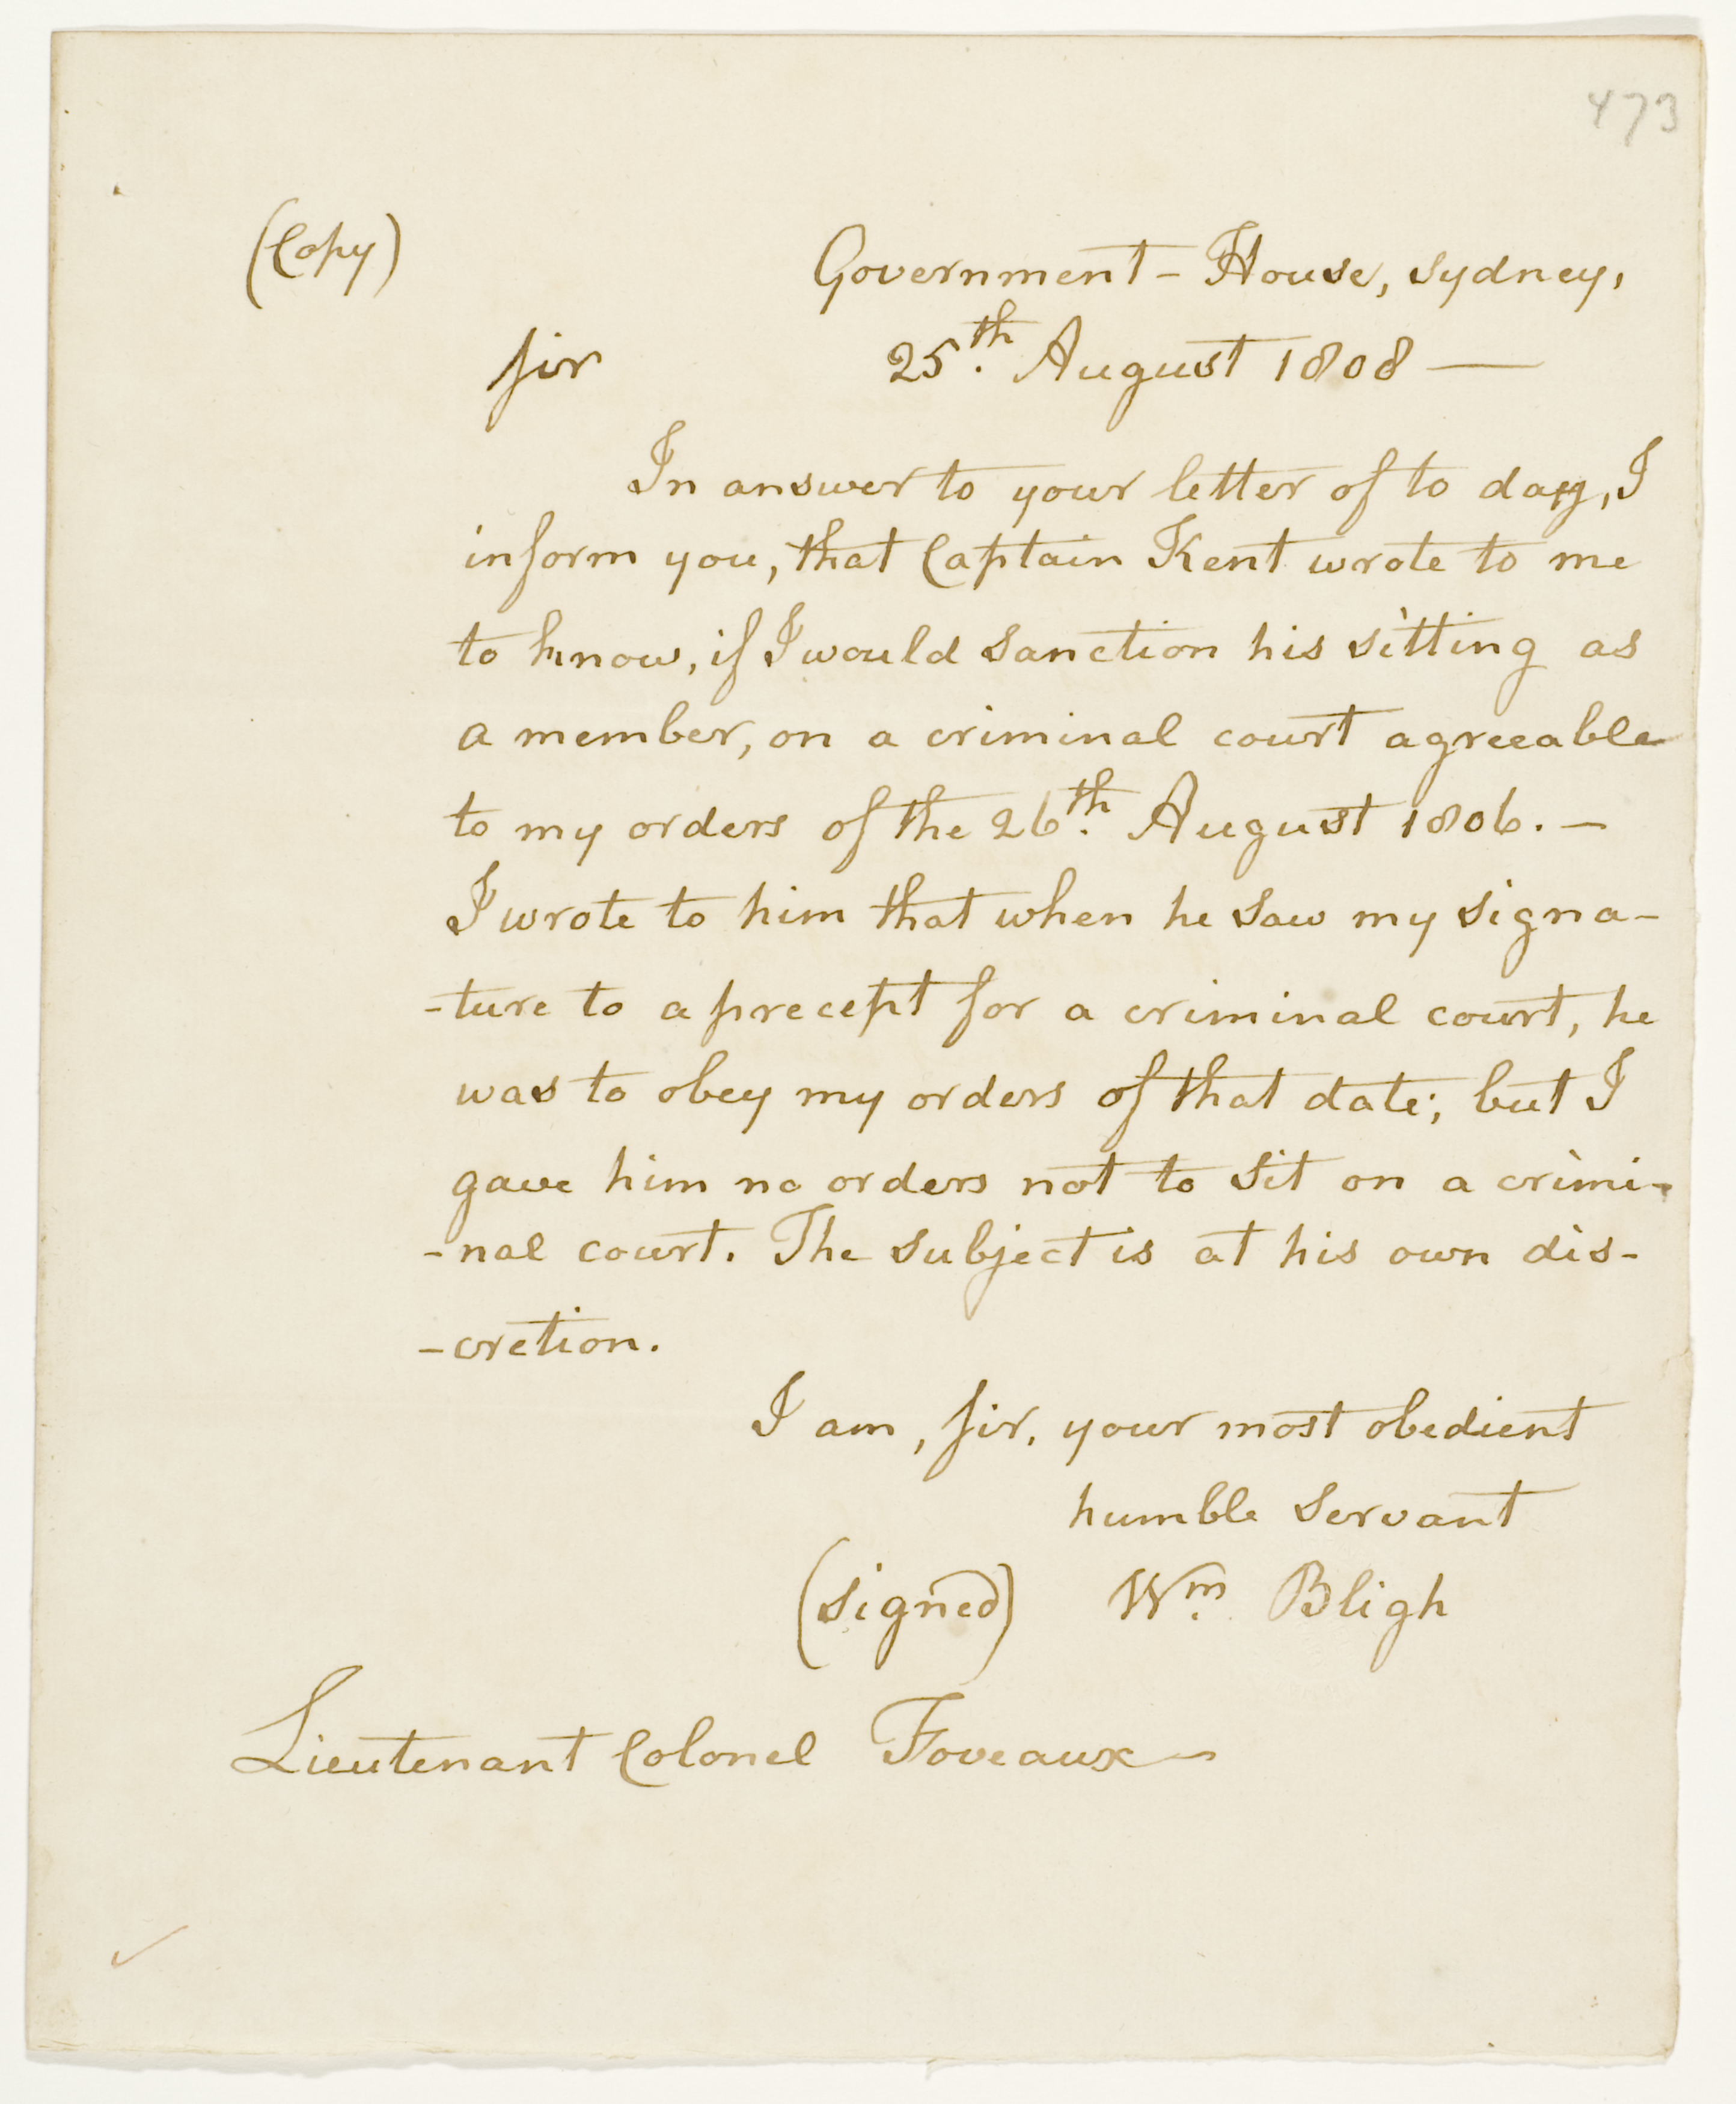 473
(Copy)
Government - House, Sydney,
Sir 25th. August 1808 —
In answer to your letter of to day, I
inform you, that Captain Kent wrote to me
to know, if I would sanction his sitting as
a member, on a criminal court agreeable
to my orders of the 26th. August 1806. —
I wrote to him that when he saw my signa-
-ture to a precept for a criminal court, he
was to obey my orders of that date; but I
gave him no orders not to sit on a crimi-
-nal court. The subject is at his own dis-
-cretion.
I am, Sir, your most obedient
humble Servant
(signed) Wm. Bligh
Lieutenant Colonel Foveaux